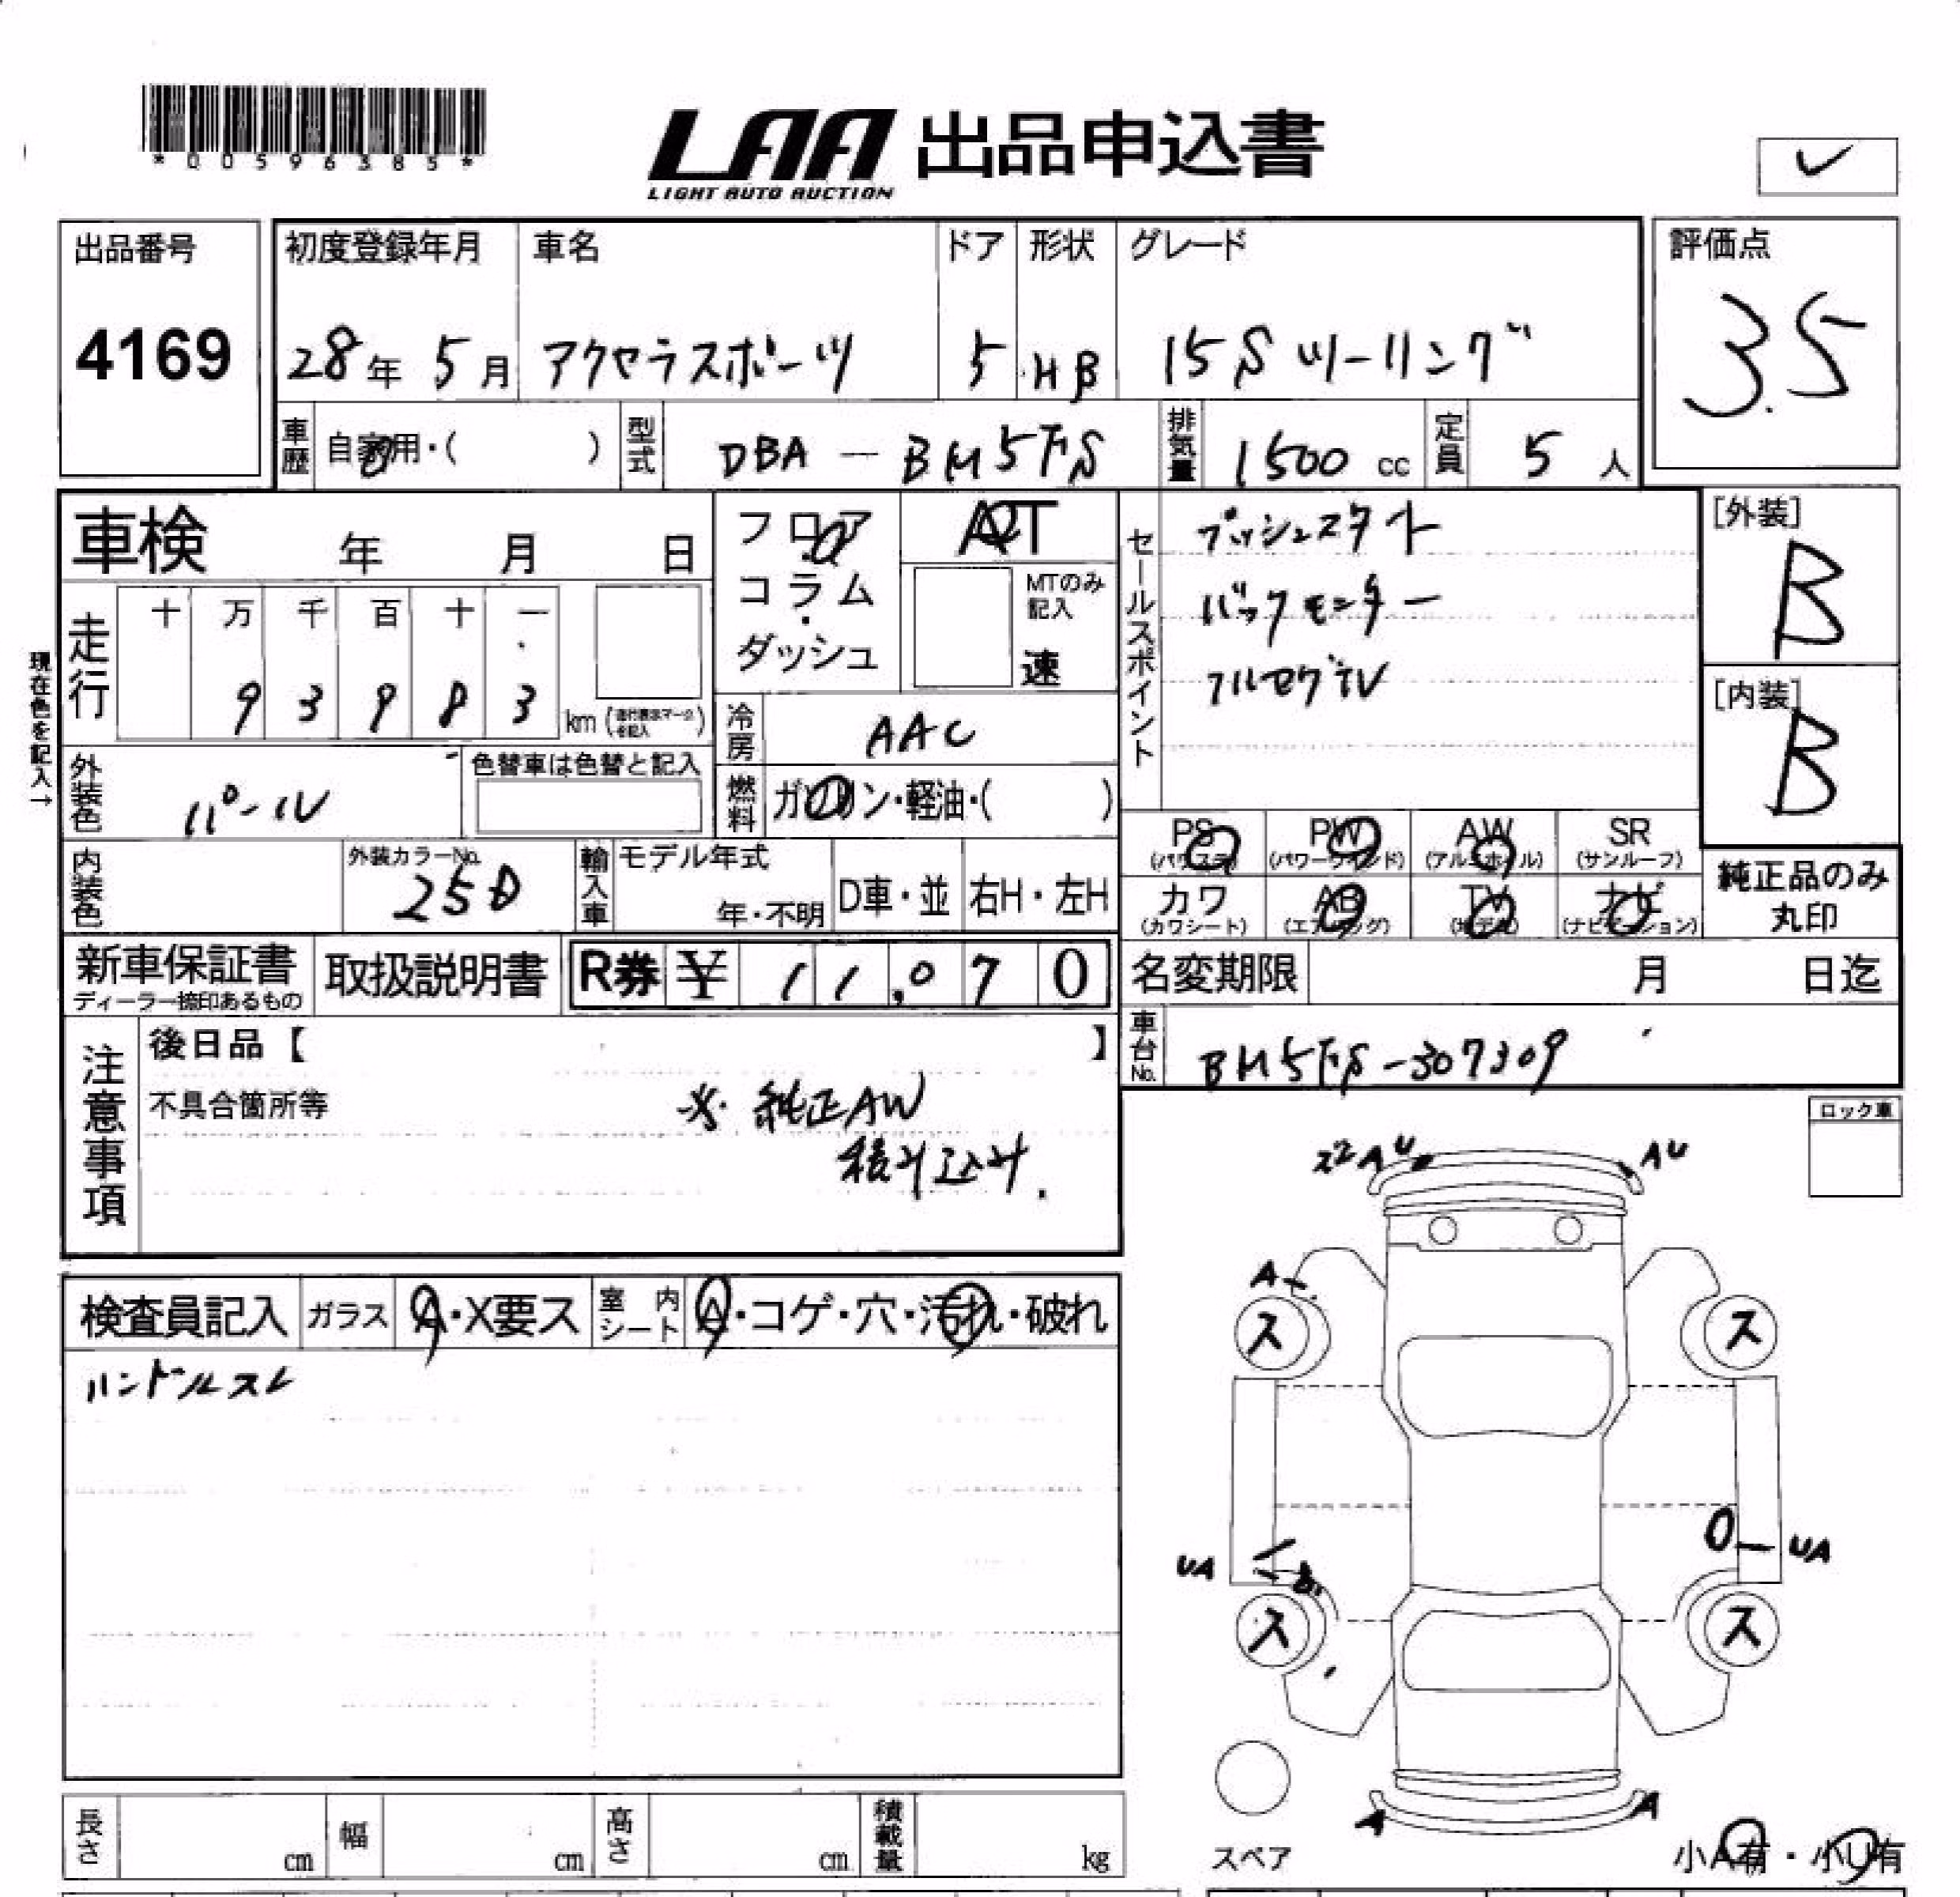 *00596385*
LAA 出品申込書
LIGHT AUTO AUCTION
出品番号
4169
初度登録年月
28年 5月
車名
アクセラスポーツ
ドア
5
形状
HB
グレード
15S ツーリング
評価点
3.5
車歴
自家用・( )
型式
DBA-BM5FS
排気量
1500 cc
定員
5 人
車検 年 月 日
フロア
・
コラム
・
ダッシュ
AT
MTのみ
記入
速
セールスポイント
プッシュスタート
バックモニター
フルセグTV
[外装]
B
[内装]
B
現在色を記入→
走行
十 万 千 百 十 一
9 3 9 8 3 km
冷房
AAC
外装色
パール
色替車は色替と記入
燃料
ガソリン・軽油・( )
PS
(パワステ)
PW
(パワーウインド)
AW
(アルミホイル)
SR
(サンルーフ)
カワ
(カワシート)
AB
(エアバッグ)
TV
(地デジ)
ナビ
(ナビゲーション)
純正品のみ
丸印
内装色
外装カラーNo.
25D
輸入車
モデル年式
年・不明
D車・並
右H・左H
新車保証書
ディーラー捺印あるもの
取扱説明書
R券 ¥ 11,070
名変期限 月 日迄
車台No.
BM5FS-307309
注意事項
後日品【 】
不具合箇所等
※ 純正AW
積み込み.
ロック車
検査員記入
ガラス
A・X要ス
室内シート
A・コゲ・穴・汚れ・破れ
ハンドルスレ
ズ2AU
AU
A
ス
ス
UA
UA
ス
ス
A
A
スペア
小A有・小U有
長さ cm
幅 cm
高さ cm
積載量 kg